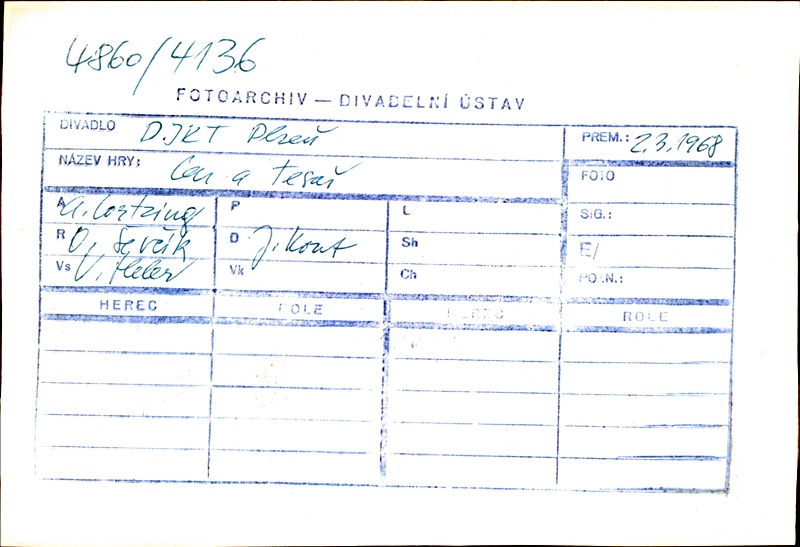 4860/4136
FOTOARCHIV — DIVADELNÍ ÚSTAV
DIVADLO DJKT Plzeň
PREM.: 2.3.1968
NÁZEV HRY: Car a tesař
FOTO
A A. Lortzing P L SIG.:
R O. Ševčík D J. Kout Sh E/
Vs V. Heller Vk Ch POZN.:
HEREC ROLE HEREC ROLE